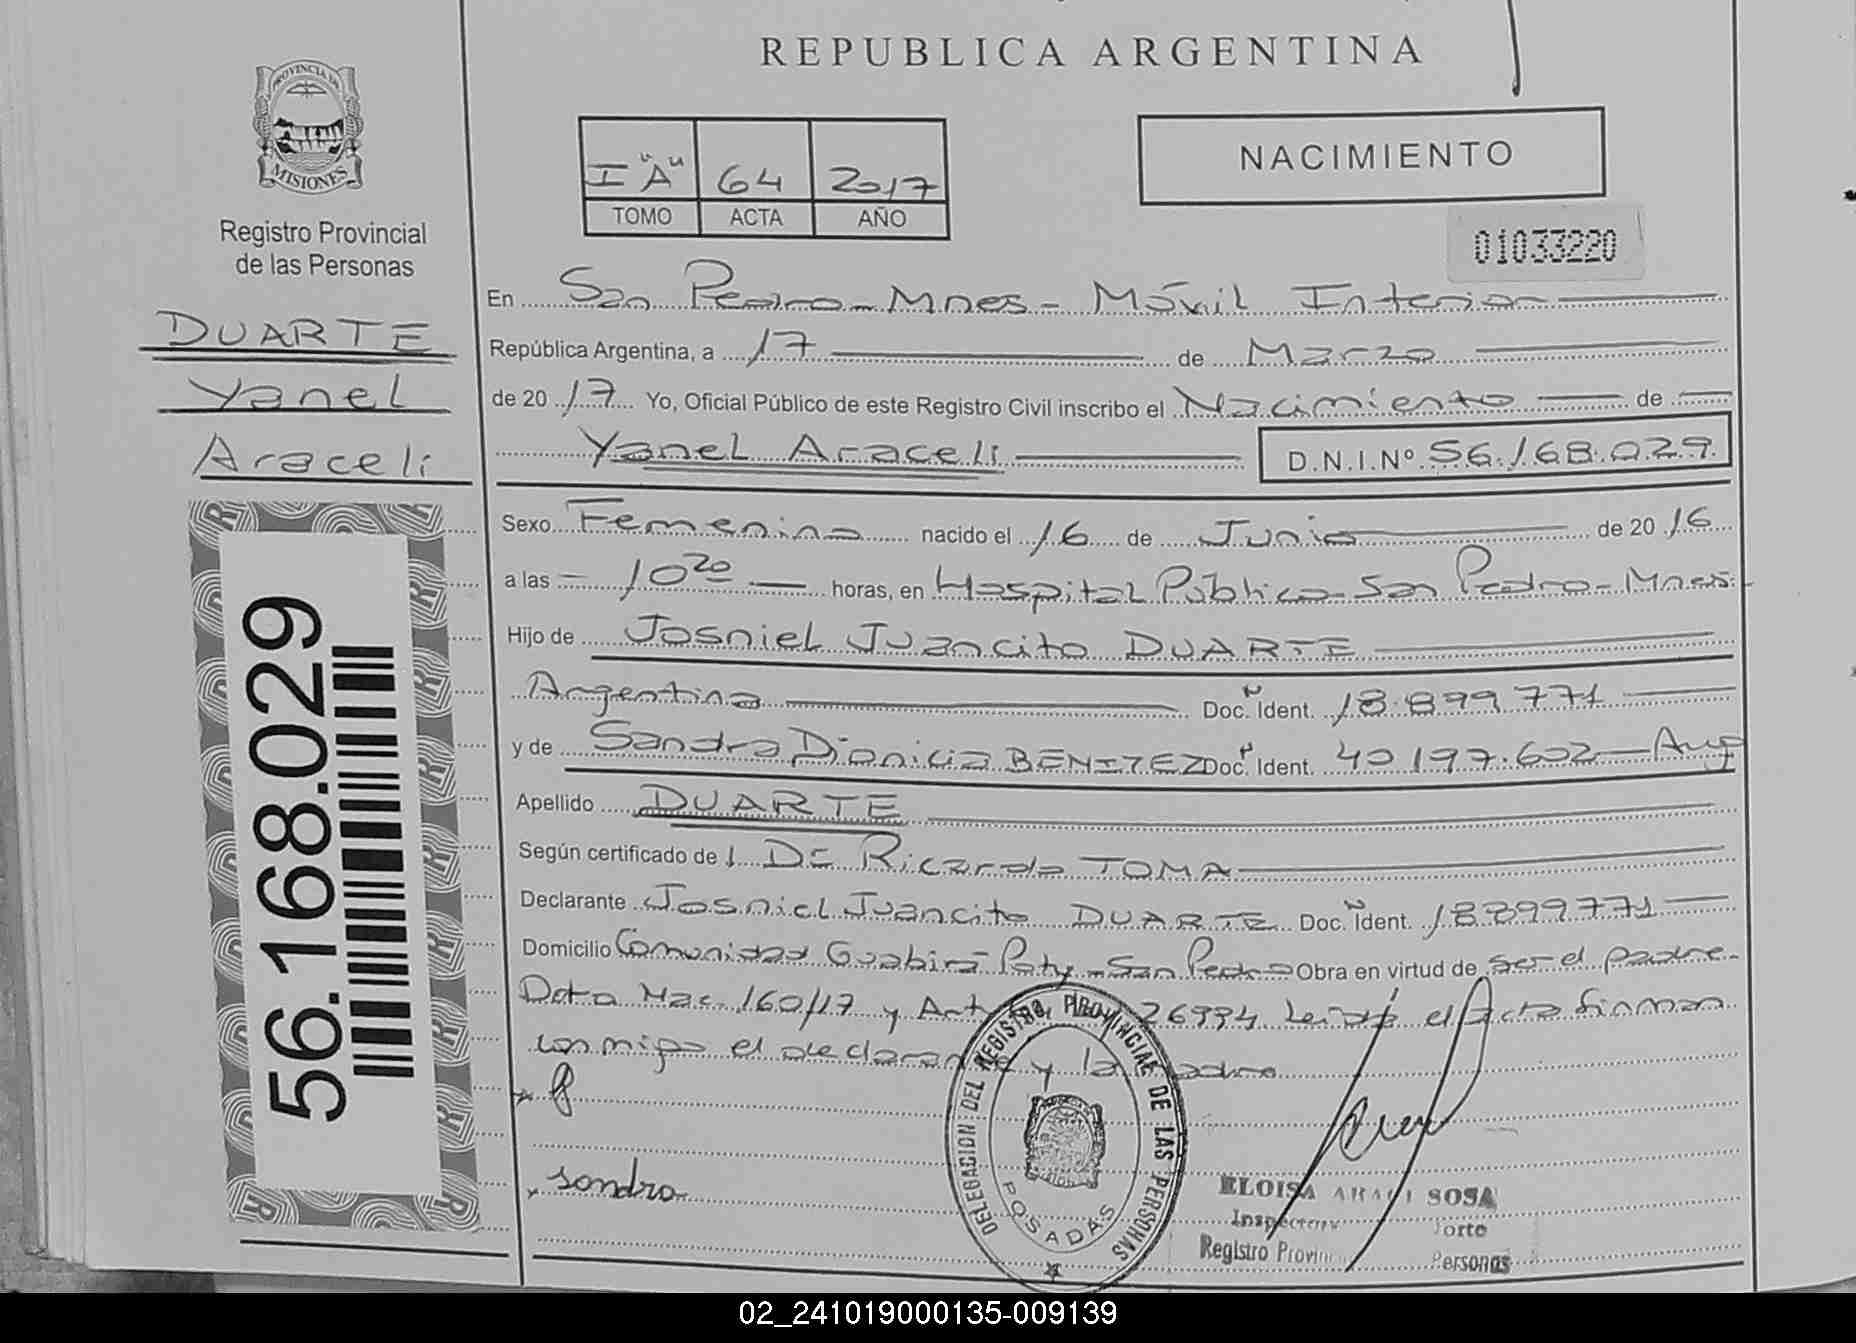 REPUBLICA ARGENTINA
PROVINCIA DE
MISIONES
Registro Provincial
de las Personas
DUARTE
Yanel
Araceli
56.168.029
I "A" 64 2017
TOMO ACTA AÑO
NACIMIENTO
01033220
En San Pedro - Mnes - Móvil Interior
República Argentina, a 17 de Marzo
de 20 17 Yo, Oficial Público de este Registro Civil inscribo el Nacimiento de
Yanel Araceli D.N.I.Nº 56.168.029
Sexo Femenino nacido el 16 de Junio de 20 16
a las 10 20 horas, en Hospital Público San Pedro - Mnes.
Hijo de Josniel Juancito DUARTE
Argentina Doc. Ident. 18.899.771
y de Sandra Dionicia BENITEZ Doc. Ident. 40.197.602 - Arg
Apellido DUARTE
Según certificado de Ricardo TOMA
Declarante Josniel Juancito DUARTE Doc. Ident. 18899771
Domicilio Comunidad Guabira Poty - San Pedro Obra en virtud de ser el padre.
Dcto Nac. 160/17 y Art 26994 Leida el Acta firman
conmigo el declarante y la madre
sandra
DELEGACION DEL REGISTRO PROVINCIAL DE LAS PERSONAS
POSADAS
ELOISA SOSA
Registro
Personas
02_241019000135-009139